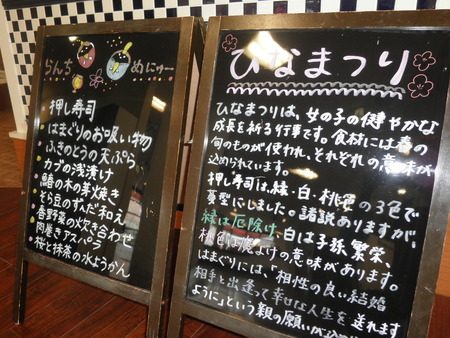 らんち めにゅー
押し寿司
はまぐりのお吸い物
ふきのとうの天ぷら
カブの浅漬け
鰆の木の芽焼き
そら豆のずんだ和え
春野菜の炊き合わせ
肉巻きアスパラ
桜と抹茶の水ようかん
ひなまつり
ひなまつりは、女の子の健やかな
成長を祈る行事です。食材には春の
旬のものが使われ、それぞれの意味が
込められています。
押し寿司は、緑・白・桃色の3色で
菱型にしました。諸説ありますが、
緑は厄除け、白は子孫繁栄、
桃色は魔よけの意味があります。
はまぐりには、「相性の良い結婚
相手と出逢って幸せな人生を送れます
ように」という親の願いが込め